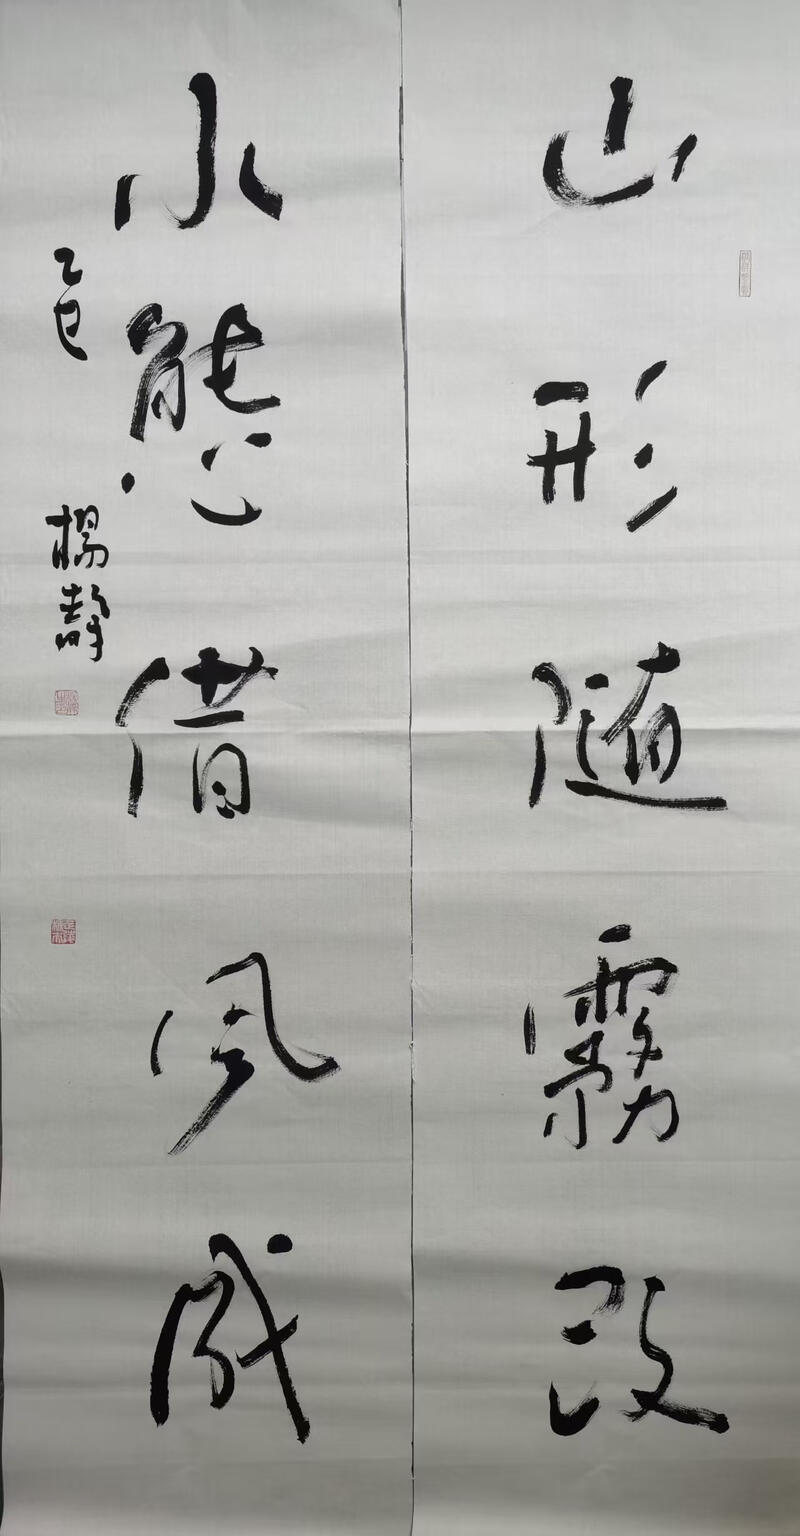 山形随霧改
水態借風成
乙巳
楊靜